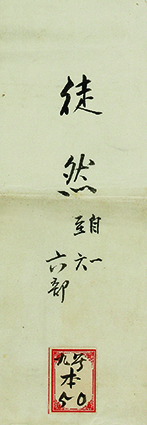 徒然
自一
至六
六部
九号
本
50